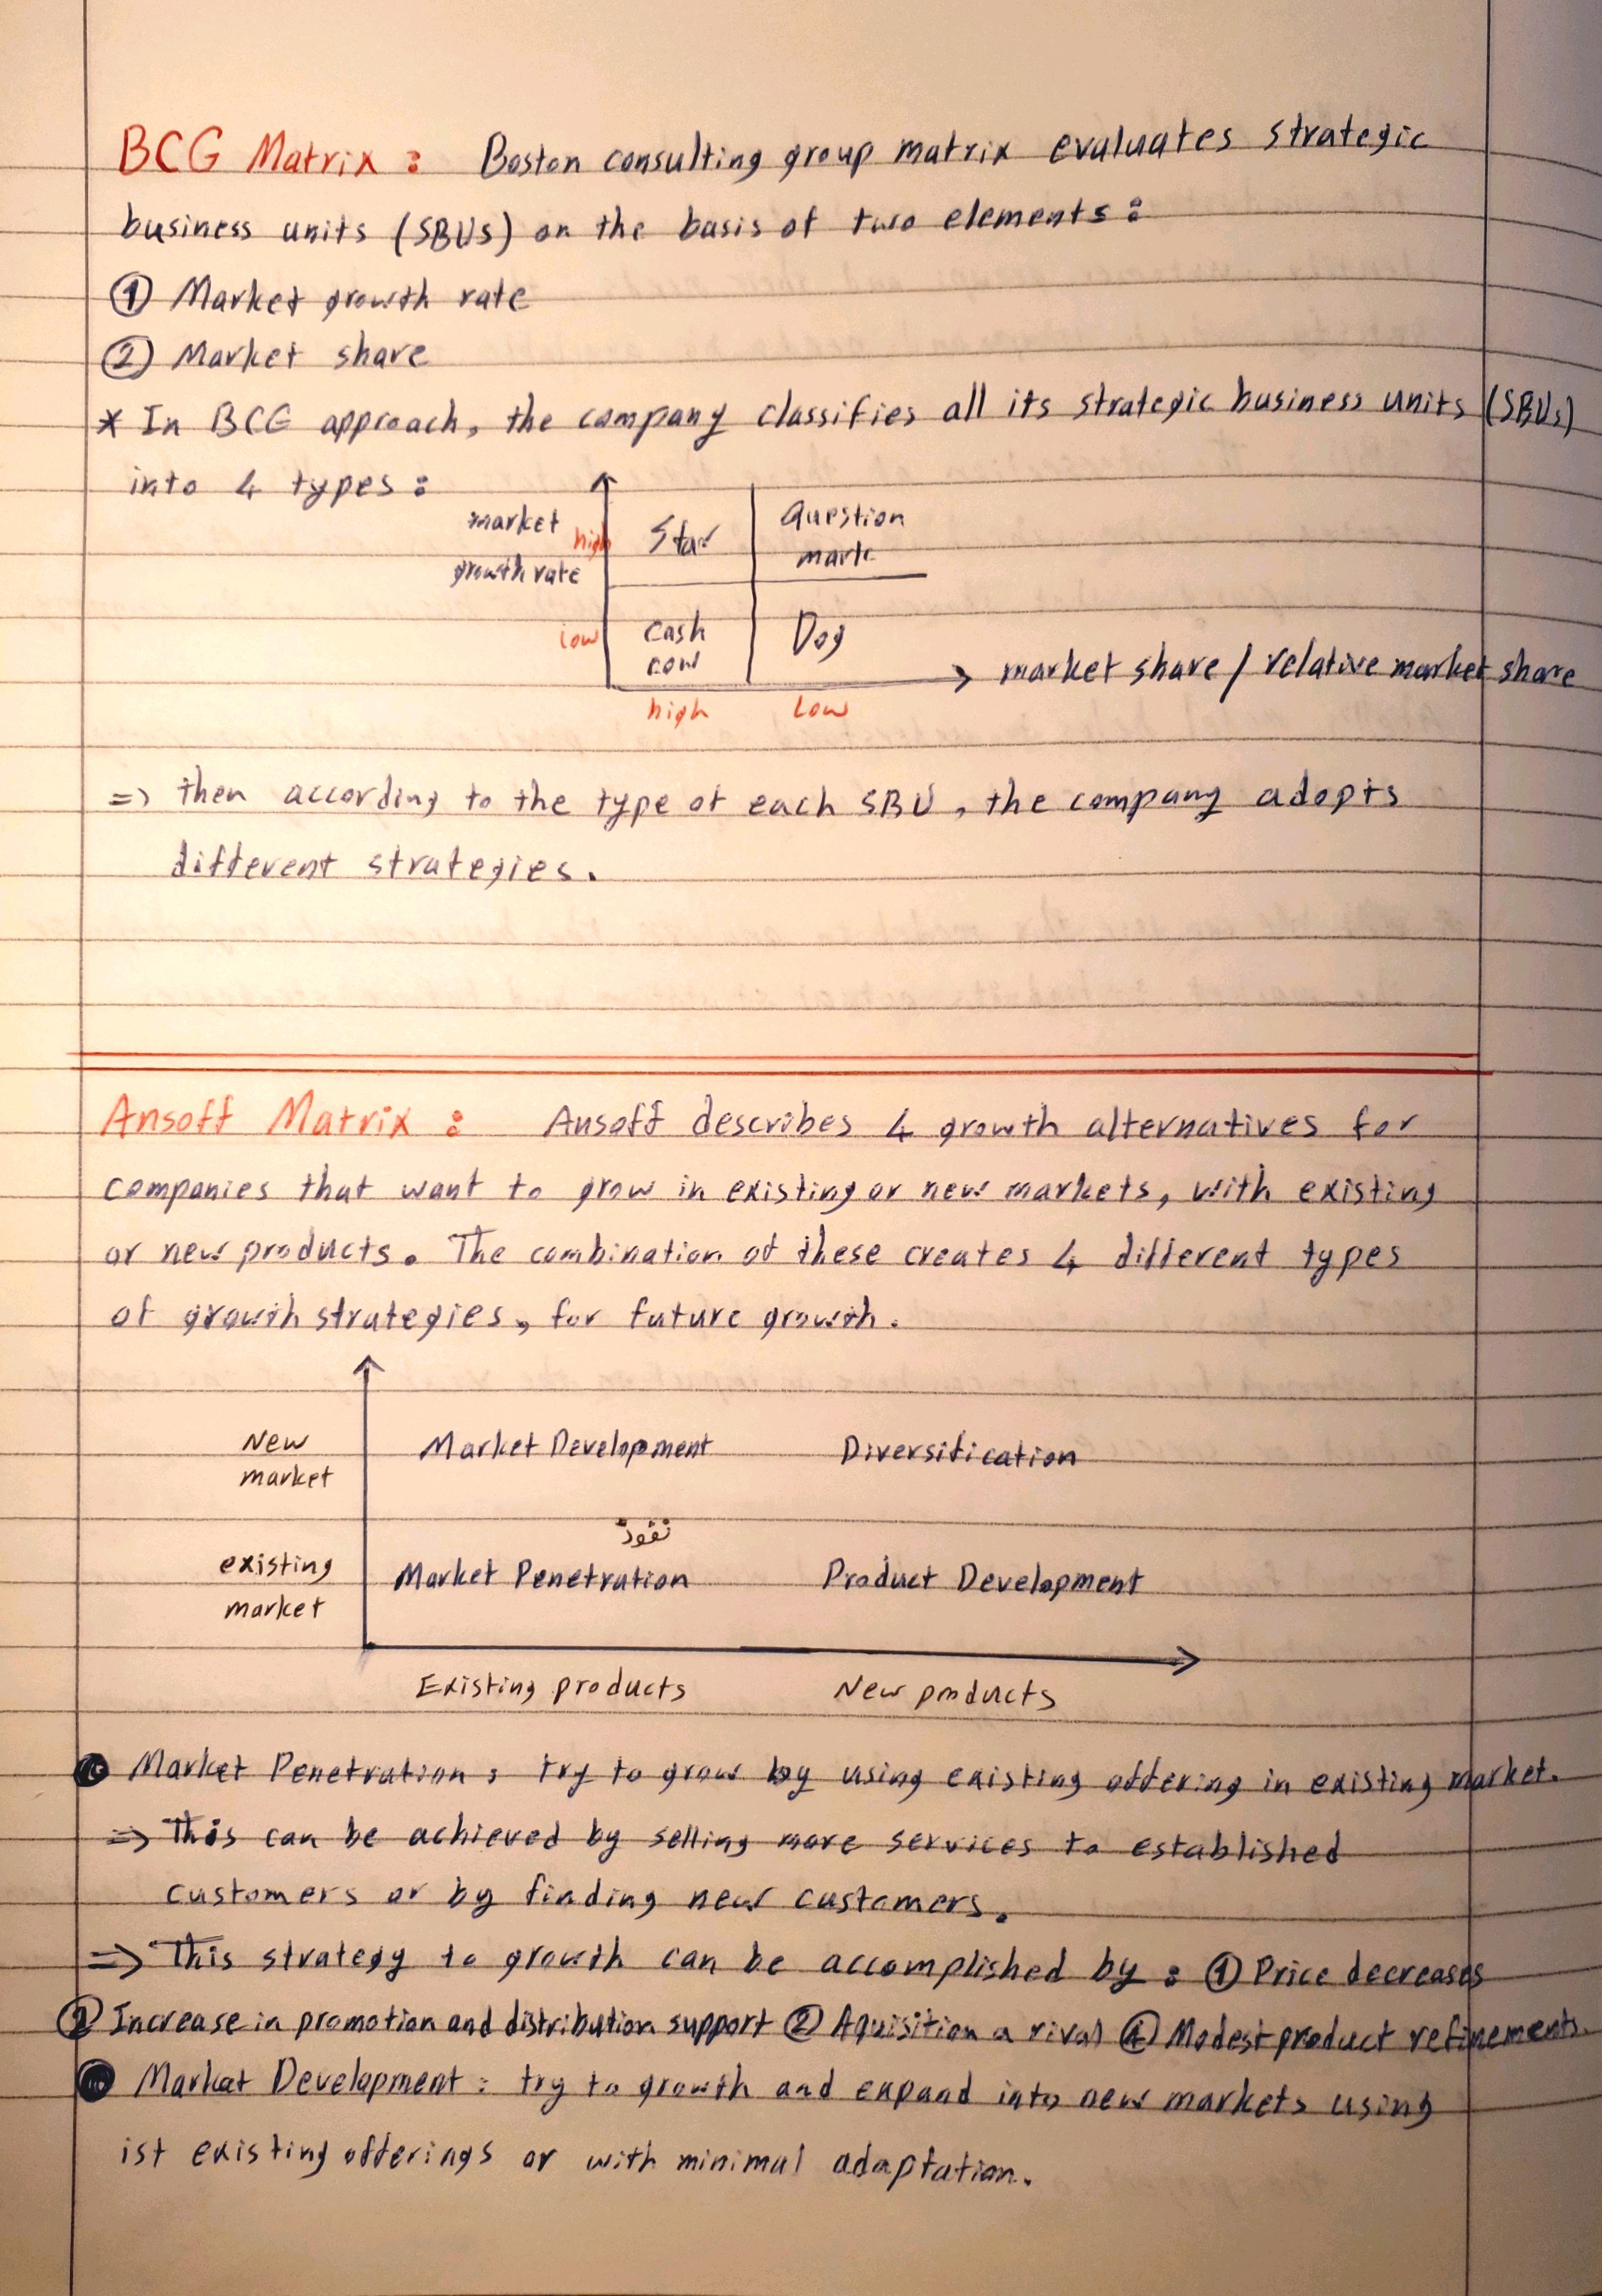 BCG Matrix : Boston consulting group matrix evaluates strategic
business units (SBUs) on the basis of two elements :
① Market growth rate
② Market share
* In BCG approach, the company classifies all its strategic business units (SBUs)
into 4 types :
market
growth rate
high
Star
Question
mark
low
cash
cow
Dog
market share / relative market share
high
Low
=> then according to the type of each SBU, the company adopts
different strategies.
Ansoff Matrix : Ansoff describes 4 growth alternatives for
companies that want to grow in existing or new markets, with existing
or new products. The combination of these creates 4 different types
of growth strategies, for future growth.
New
market
Market Development
Diversification
نفوذ
existing
market
Market Penetration
Product Development
Existing products
New products
Market Penetration : try to grow by using existing offering in existing market.
=> This can be achieved by selling more services to established
customers or by finding new customers.
=> This strategy to growth can be accomplished by : ① Price decreases
② Increase in promotion and distribution support ② Aquisition a rival ④ Modest product refinements.
Market Development : try to growth and expand into new markets using
ist existing offerings or with minimal adaptation.